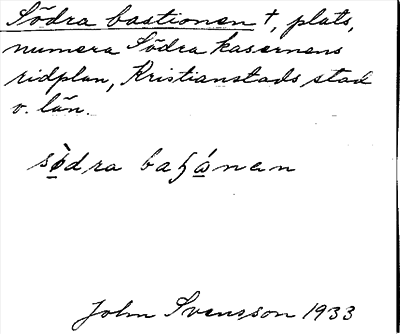 Södra bastionen †, plats,
numera Södra kasernens
ridplan, Kristianstads stad
o. län.
sö̀dra baꜧá̱nen
John Svensson 1933